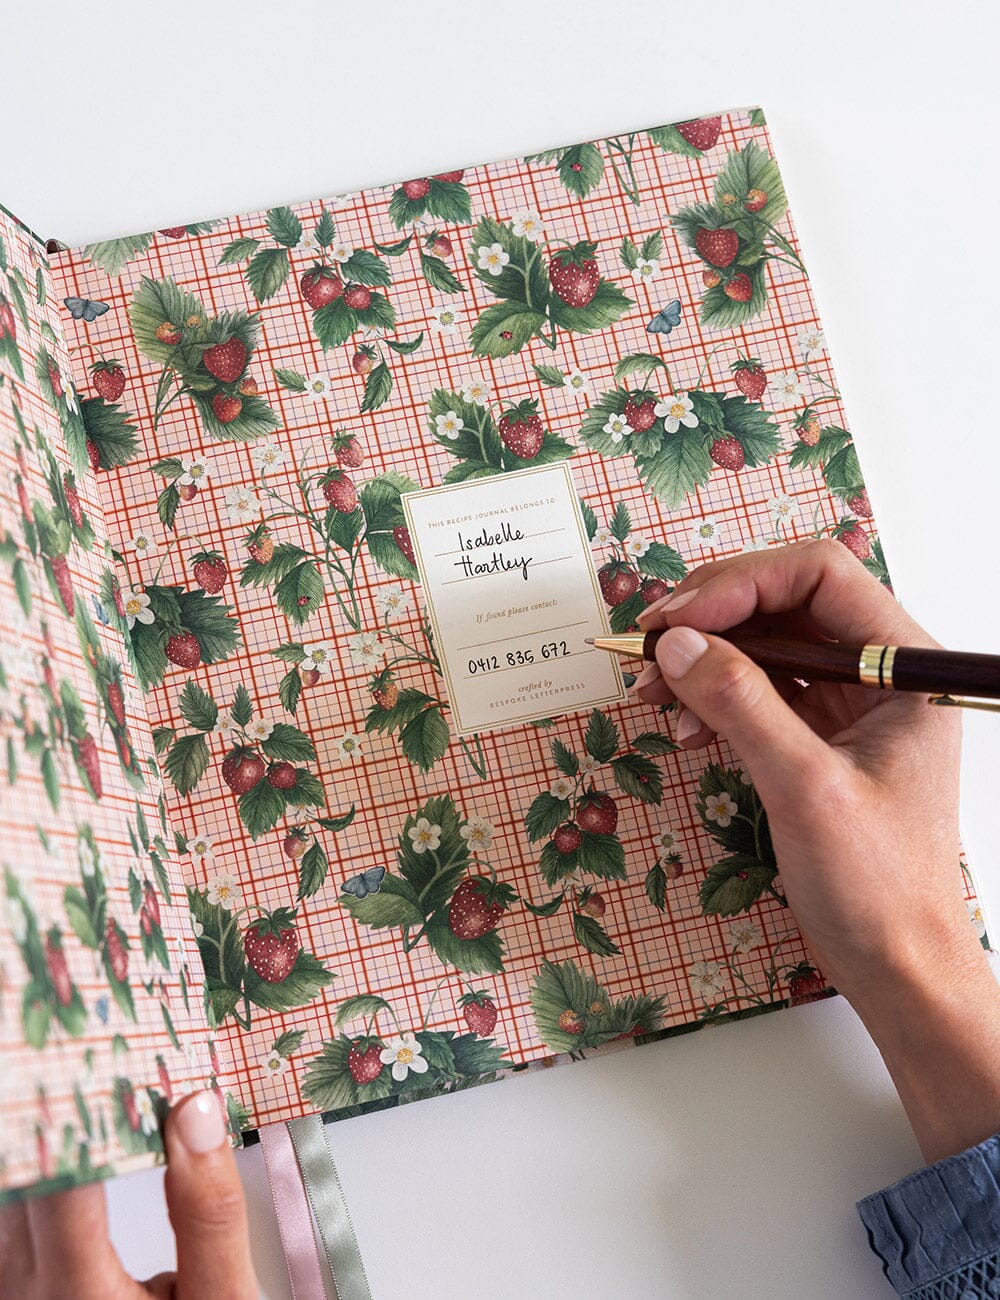 THIS RECIPE JOURNAL BELONGS TO:
Isabelle
Hartley
If found please contact:
0412 835 672
crafted by
BESPOKE LETTERPRESS